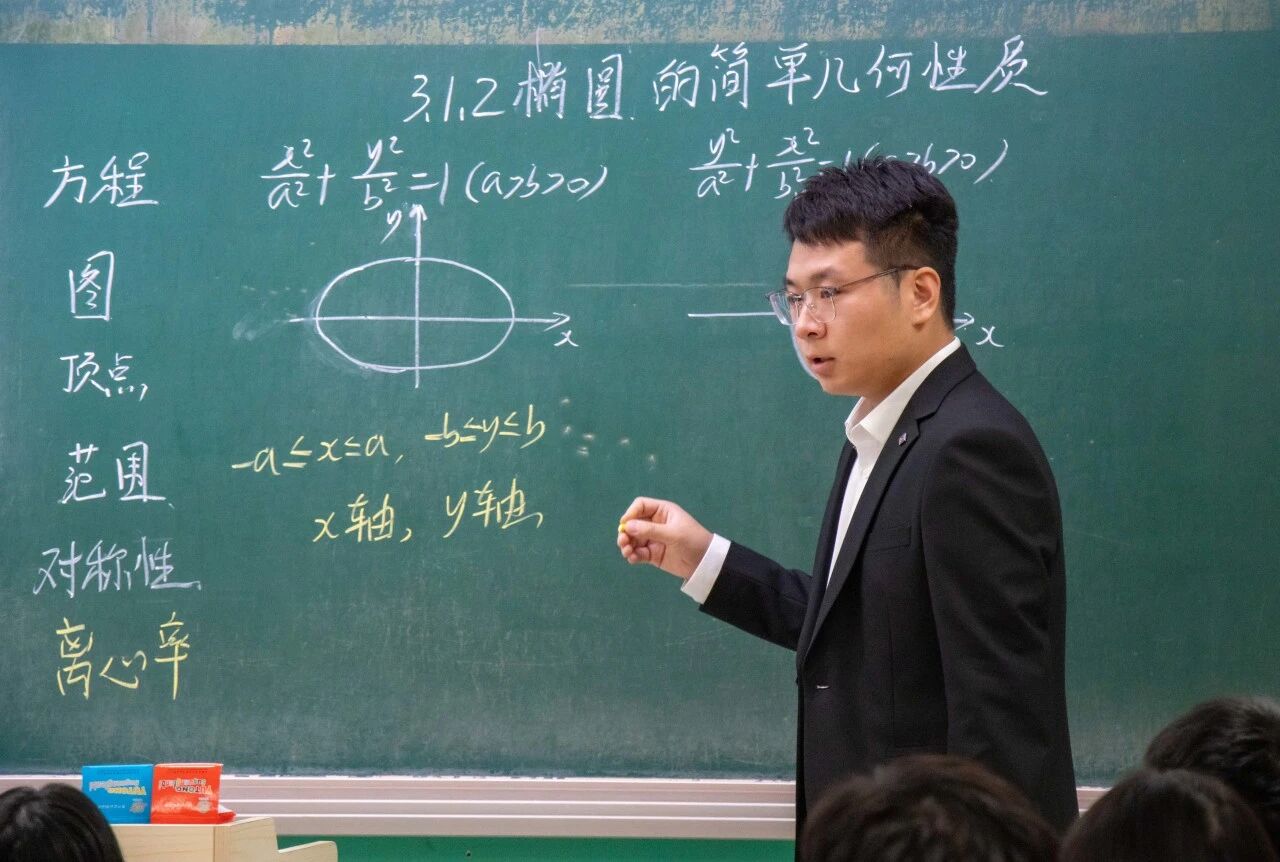 3.1.2 椭圆的简单几何性质
方程 x²/a² + y²/b² = 1 (a>b>0) y²/a² + x²/b² = 1 (a>b>0)
图 y x x
顶点
范围 -a≤x≤a, -b≤y≤b
对称性 x轴, y轴
离心率